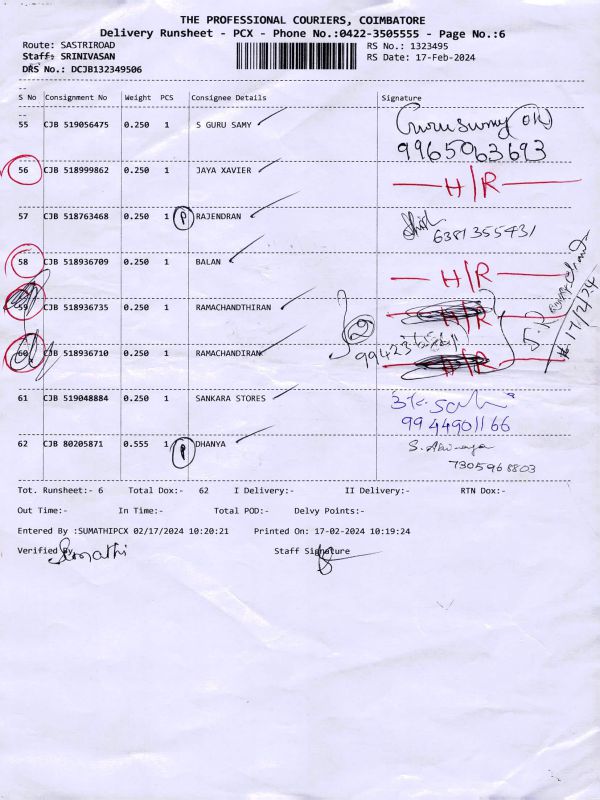 THE PROFESSIONAL COURIERS, COIMBATORE
Delivery Runsheet - PCX - Phone No.:0422-3505555 - Page No.:6
Route: SASTRIROAD RS No.: 1323495
Staff: SRINIVASAN RS Date: 17-Feb-2024
DRS No.: DCJB132349506
S No Consignment No Weight PCS Consignee Details Signature
55 CJB 519056475 0.250 1 S GURU SAMY Gurusamy (OK)
9965063693
56 CJB 518999862 0.250 1 JAYA XAVIER H/R
57 CJB 518763468 0.250 1 P RAJENDRAN
6381355431
58 CJB 518936709 0.250 1 BALAN H/R
59 CJB 518936735 0.250 1 RAMACHANDTHIRAN H/R
2
17/2/24
60 CJB 518936710 0.250 1 RAMACHANDIRAN H/R
99423
61 CJB 519048884 0.250 1 SANKARA STORES
9944901166
62 CJB 80205871 0.555 1 P DHANYA S.
7305968803
Tot. Runsheet:- 6 Total Dox:- 62 I Delivery:- II Delivery:- RTN Dox:-
Out Time:- In Time:- Total POD:- Delvy Points:-
Entered By :SUMATHIPCX 02/17/2024 10:20:21 Printed On: 17-02-2024 10:19:24
Verified By Sumathi Staff Signature